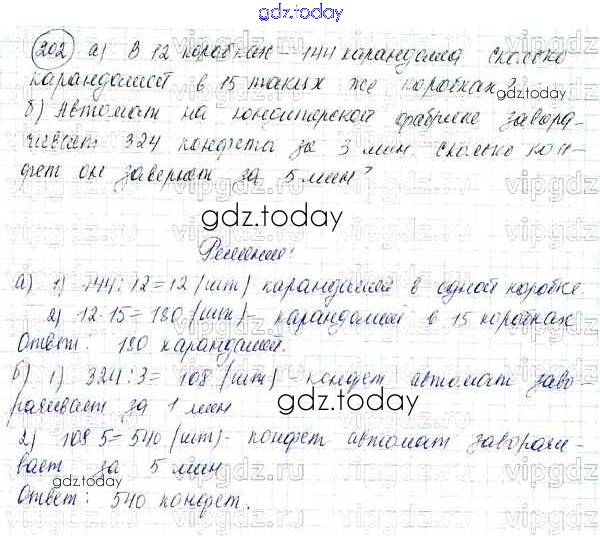 gdz.today
202 а) В 12 коробках 144 карандаша сколько
карандашей в 15 таких же коробках?
б) Автомат на кондитерской фабрике завора-
чивает 324 конфеты за 3 мин сколько кон-
фет он завернёт за 5 мин?
gdz.today
Решение:
а) 1) 144:12=12 (шт) карандашей в одной коробке
2) 12·15=180 (шт)- карандашей в 15 коробках
Ответ: 180 карандашей.
б) 1) 324:3= 108 (шт) - конфет автомат заво-
рачивает за 1 мин
gdz.today
2) 108 5= 540 (шт)- конфет автомат заворачи-
вает за 5 мин
Ответ: 540 конфет.